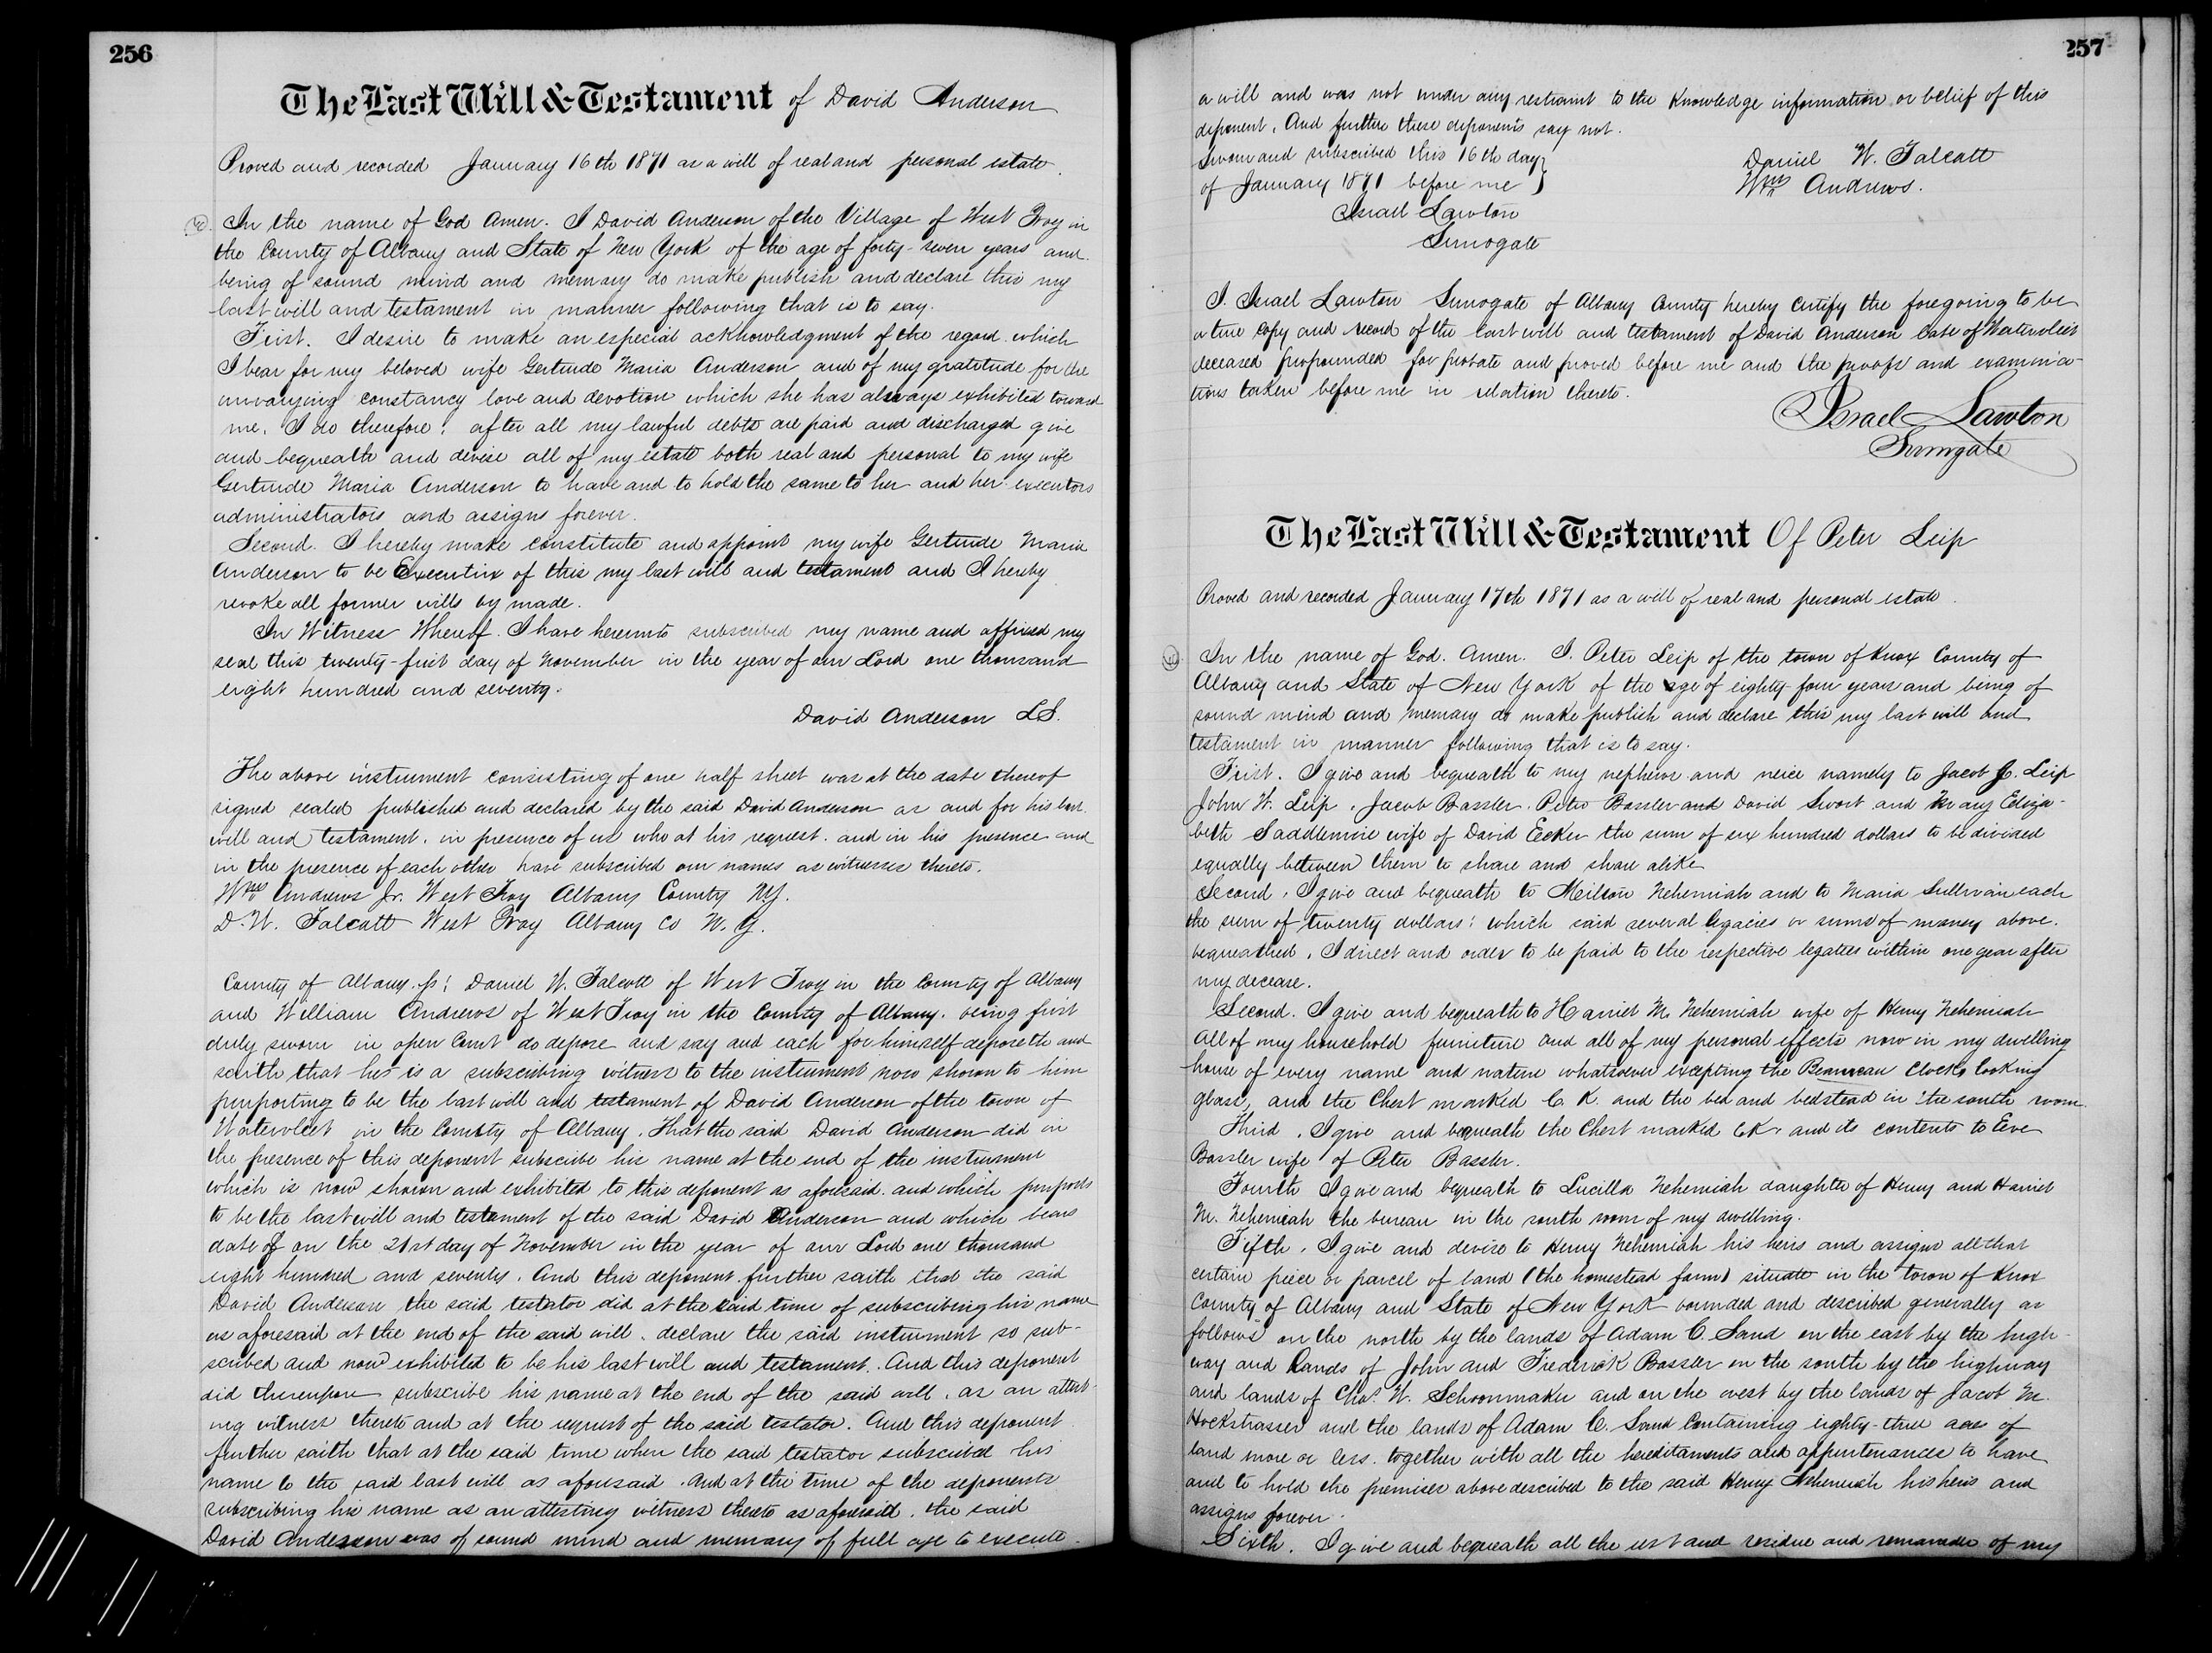 256
The Last Will & Testament of David Anderson
Proved and recorded January 16th 1871 as a will of real and personal estate.
In the name of God Amen. I David Anderson of the Village of West Troy in
the County of Albany and State of New York of the age of forty-seven years and
being of sound mind and memory do make publish and declare this my
last will and testament in manner following that is to say.
First. I desire to make an especial acknowledgment of the regard which
I bear for my beloved wife Gertrude Maria Anderson and of my gratitude for the
unvarying constancy love and devotion which she has always exhibited toward
me. I do therefore: after all my lawful debts are paid and discharged give
and bequeath and devise all of my estate both real and personal to my wife
Gertrude Maria Anderson to have and to hold the same to her and her executors
administrators and assigns forever.
Second. I hereby make constitute and appoint my wife Gertrude Maria
Anderson to be Executrix of this my last will and testament and I hereby
revoke all former wills by made.
In Witness Whereof. I have hereunto subscribed my name and affixed my
seal this twenty-first day of November in the year of our Lord one thousand
eight hundred and seventy.
David Anderson LS.
The above instrument consisting of one half sheet was at the date thereof
signed sealed published and declared by the said David Anderson as and for his last
will and testament. in presence of us who at his request. and in his presence and
in the presence of each other have subscribed our names as witnesses thereto.
Wm Andrews Jr. West Troy Albany County NY.
D. W. Talcott West Troy Albany Co N. Y.
County of Albany. ss: Daniel W. Talcott of West Troy in the County of Albany
and William Andrews of West Troy in the County of Albany. being first
duly sworn in open Court do depose and say and each for himself deposeth and
saith that he is a subscribing witness to the instrument now shown to him
purporting to be the last will and testament of David Anderson of the town of
Watervliet in the County of Albany. That the said David Anderson did in
the presence of this deponent subscribe his name at the end of the instrument
which is now shown and exhibited to this deponent as aforesaid. and which purports
to be the last will and testament of the said David Anderson and which bears
date of on the 21st day of November in the year of our Lord one thousand
eight hundred and seventy. And this deponent further saith that the said
David Anderson the said testator did at the said time of subscribing his name
as aforesaid at the end of the said will. declare the said instrument so sub-
scribed and now exhibited to be his last will and testament. And this deponent
did thereupon subscribe his name at the end of the said will. as an attest-
ing witness thereto and at the request of the said testator. And this deponent
further saith that at the said time when the said testator subscribed his
name to the said last will as aforesaid. And at the time of the deponents
subscribing his name as an attesting witness thereto as aforesaid. the said
David Anderson was of sound mind and memory of full age to execute
257
a will and was not under any restraint to the knowledge information or belief of this
deponent. And further these deponents say not.
Sworn and subscribed this 16th day
of January 1871 before me
Israel Lawton
Surrogate
Daniel W. Talcott
Wm Andrews.
I. Israel Lawton Surrogate of Albany County hereby certify the foregoing to be
a true copy and record of the last will and testament of David Anderson late of Watervliet
deceased propounded for probate and proved before me and the proofs and examina-
tions taken before me in relation thereto.
Israel Lawton
Surrogate
The Last Will & Testament Of Peter Leip
Proved and recorded January 17th 1871 as a will of real and personal estate.
In the name of God. Amen. I. Peter Leip of the town of Knox County of
Albany and State of New York of the age of eighty-four years and being of
sound mind and memory do make publish and declare this my last will and
testament in manner following that is to say.
First. I give and bequeath to my nephews and neice namely to Jacob J. Leip
John W. Leip. Jacob Bassler. Peter Bassler and David Swart and Mary Eliza-
beth Saddlemire wife of David Ecker the sum of six hundred dollars to be divided
equally between them to share and share alike
Second. I give and bequeath to Nehemiah and to Maria Sullivan each
the sum of twenty dollars: which said several legacies or sums of money above.
bequeathed. I direct and order to be paid to the respective legatees within one year after
my decease.
Second. I give and bequeath to Harriet M. Nehemiah wife of Henry Nehemiah
All of my household furniture and all of my personal effects now in my dwelling
house of every name and nature whatsoever excepting the clock looking
glass, and the Chest marked C. K. and the bed and bedstead in the south room.
Third. I give and bequeath the Chest marked CK and its contents to Eve
Bassler wife of Peter Bassler.
Fourth I give and bequeath to Lucilla Nehemiah daughter of Henry and Harriet
M. Nehemiah the bureau in the south room of my dwelling.
Fifth. I give and devise to Henry Nehemiah his heirs and assigns all that
certain piece or parcel of land (the homestead farm) situate in the town of Knox
County of Albany and State of New York bounded and described generally as
follows on the north by the lands of Adam C. Sand on the east by the high-
way and lands of John and Frederick Bassler on the south by the highway
and lands of Chas. W. Schoonmaker and on the west by the lands of Jacob M.
Hockstrasser and the lands of Adam C. Sand Containing eighty-three acres of
land more or less. together with all the hereditaments and appurtenances to have
and to hold the premises above described to the said Henry Nehemiah his heirs and
assigns forever.
Sixth. I give and bequeath all the rest and residue and remainder of my